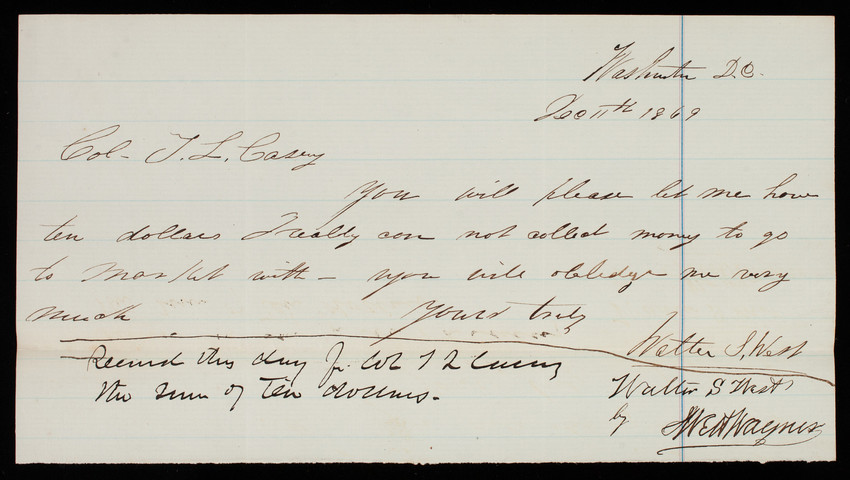 Washington D.C.
Dec 11th 1869
Col- T. L. Casey
You will please let me have
ten dollars I really can not collect money to go
to market with - you will obledge me very
much Yours truly
Walter S. West
Received this day fr. Col T L Casey
the sum of ten dollars.
Walter S West
by
Wagner